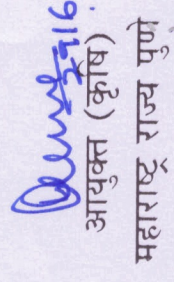 आयुक्त (कृषि)
महाराष्ट्र राज्य पुणे